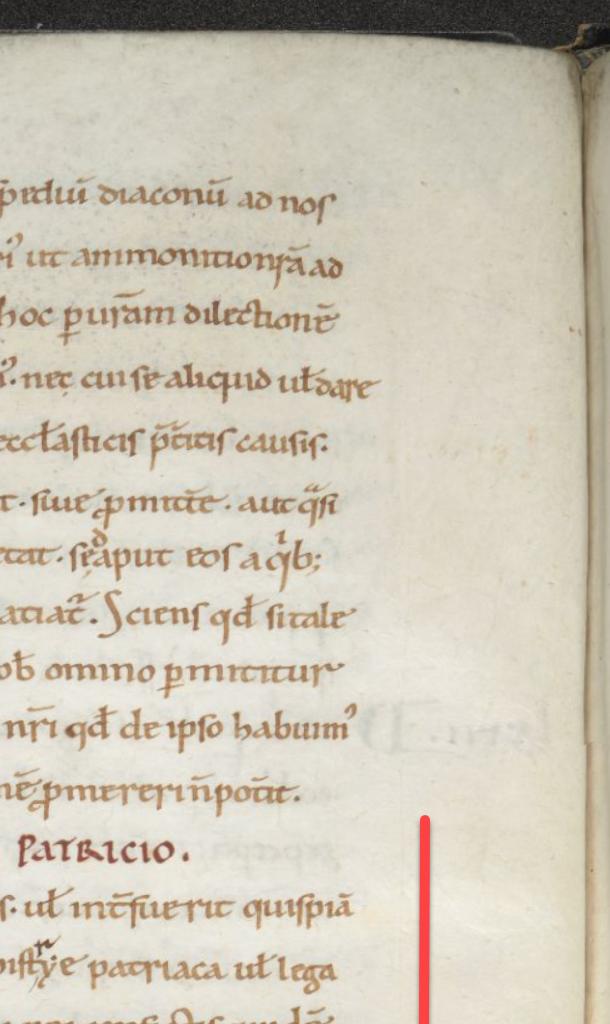 p̄ediū diaconū ad nos
ri᾿ ut ammonitionr̄ā ad
hoc ꝑ ur̄am dilectionē
᾿. nec cui se aliquid ul̄ dare
eccl̄asticis p̄t̄itis causis.
t. siue ꝓmitt̄e. aut qᷓsi
etat. sed aput eos a qͥb;
atiat᷒. Sciens qđ si tale
ob omino ꝑmititur
nr̄i qđ de ipso habuim᾿
nē ꝓmereri n̄ pot̄it.
PATRICIO.
s. ul̄ int̄fuerit quispiā
patriaca ul̄ lega